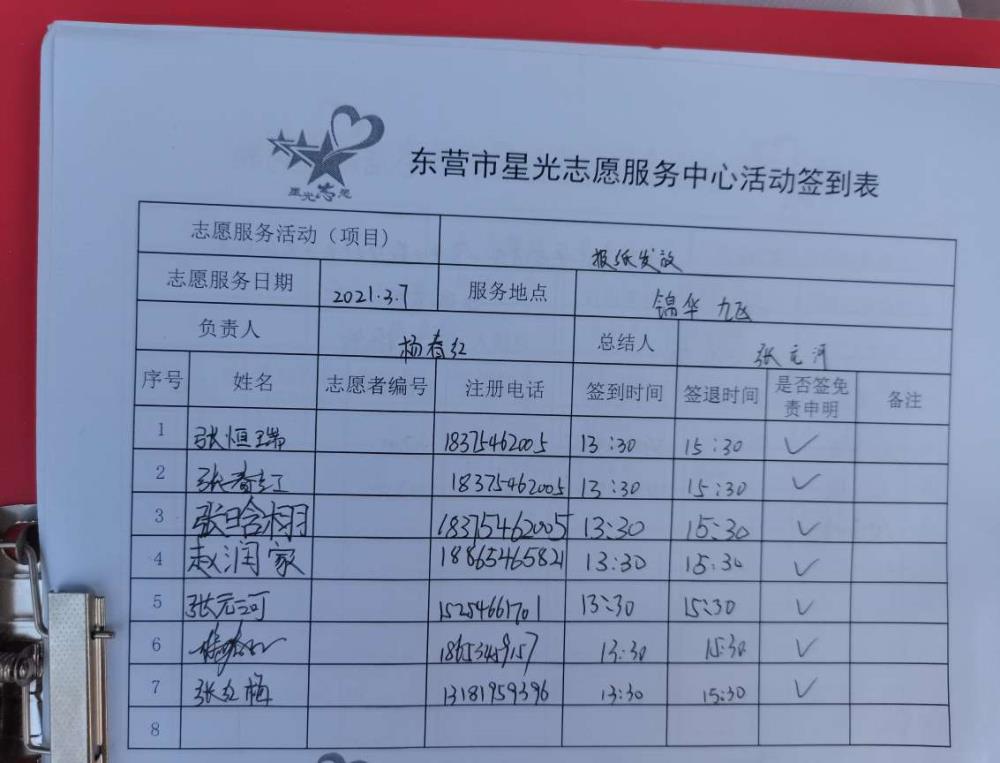 星光志愿
东营市星光志愿服务中心活动签到表
志愿服务活动（项目） 报纸发放
志愿服务日期 2021.3.7 服务地点 锦华 九区
负责人 杨春红 总结人 张元河
序号 姓名 志愿者编号 注册电话 签到时间 签退时间 是否签免责申明 备注
1 张恒瑞 18375462005 13:30 15:30 ✓
2 张春红 18375462005 13:30 15:30 ✓
3 张晗栩 18375462005 13:30 15:30 ✓
4 赵润家 18865465821 13:30 15:30 ✓
5 张元河 15254661701 13:30 15:30 ✓
6 13:30 15:30 ✓
7 张红梅 13181959396 13:30 15:30 ✓
8